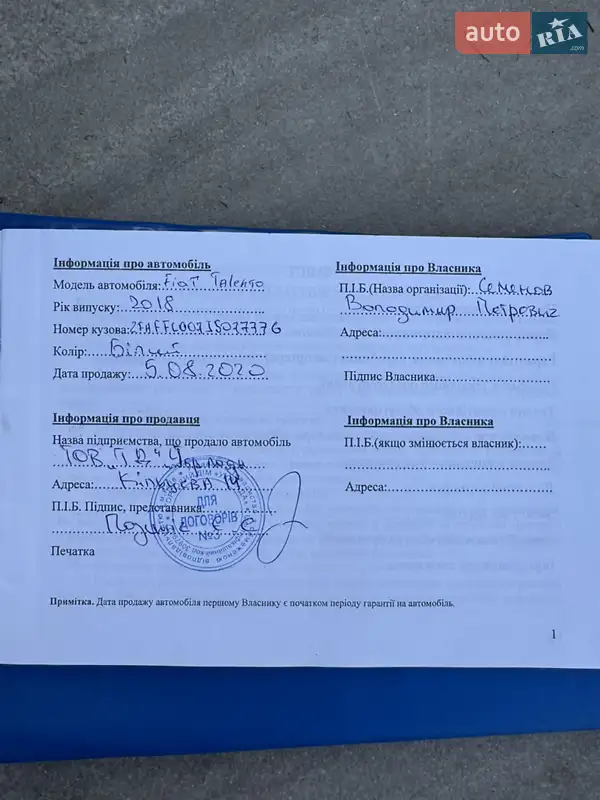 auto RIA .com
Інформація про автомобіль
Модель автомобіля: Fiat Talento
Рік випуску: 2018
Номер кузова:
Колір: Білий
Дата продажу: 5.08.2020
Інформація про Власника
П.І.Б.(Назва організації): Семенов
Володимир Петрович
Адреса:
Підпис Власника
Інформація про продавця
Назва підприємства, що продало автомобіль
ТОВ "ТД"
Адреса:
П.І.Б. Підпис, представника:
ДЛЯ
ДОГОВОРІВ
№3
Печатка
Інформація про Власника
П.І.Б.(якщо змінюється власник):
Адреса:
Примітка. Дата продажу автомобіля першому Власнику є початком періоду гарантії на автомобіль.
1